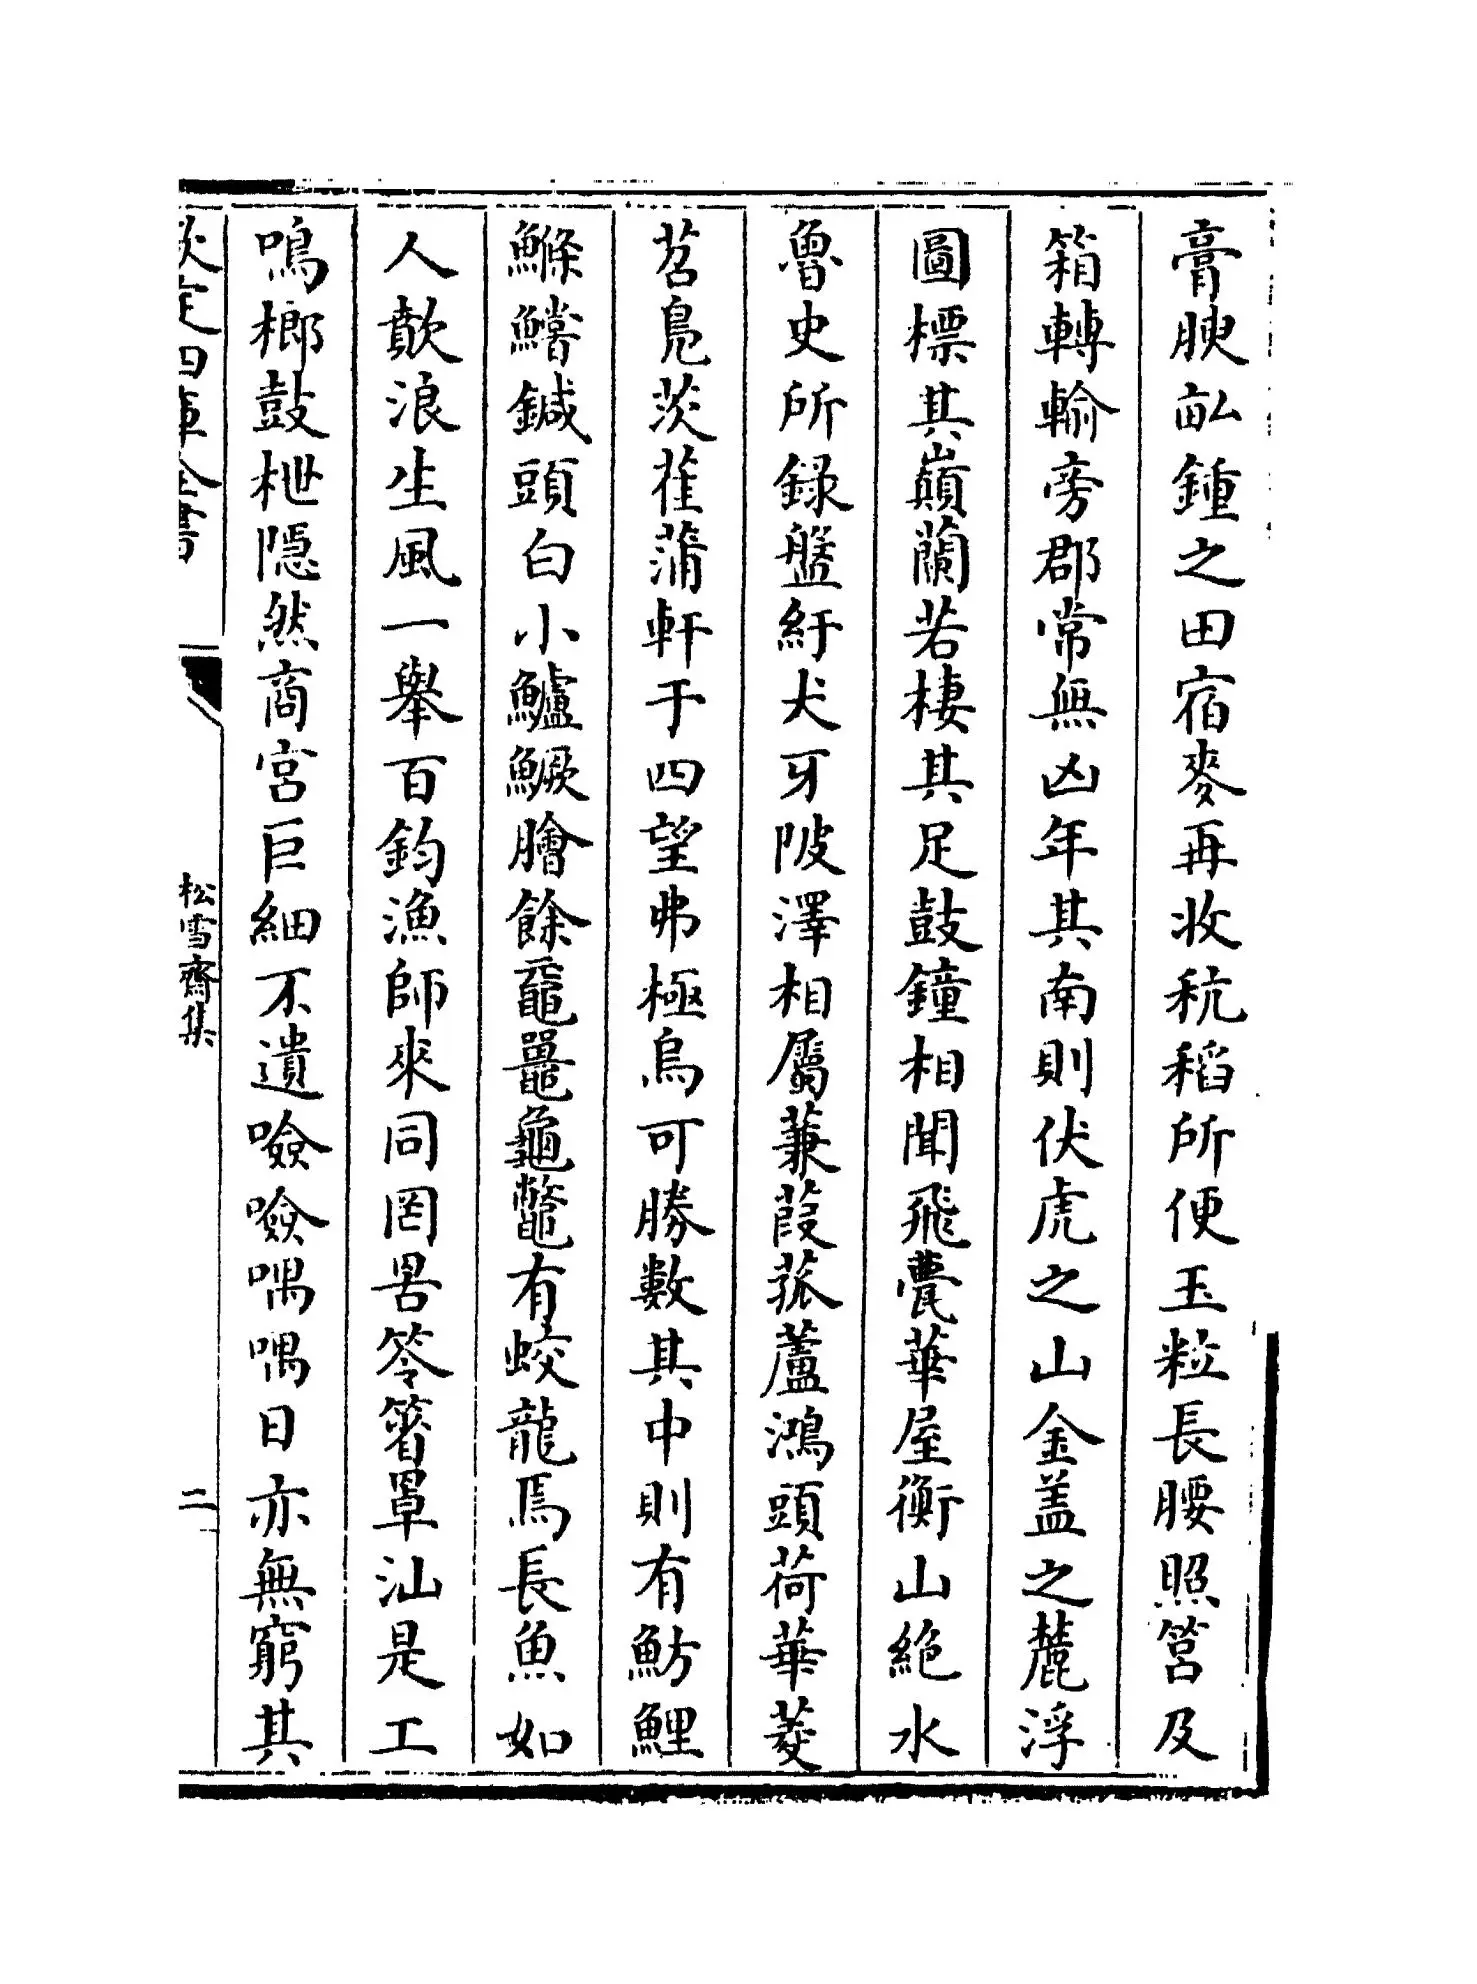 膏腴畆鍾之田宿麥再收秔稻所便玉粒長腰照筥及
箱轉輸旁郡常無凶年其南則伏虎之山金盖之麓浮
圖標其巔蘭若棲其足鼓鐘相聞飛甍華屋衡山絶水
魯史所録盤紆犬牙陂澤相屬蒹葭菰蘆鴻頭荷華菱
苕鳧茨萑蒲軒于四望弗極烏可勝數其中則有魴鯉
鰷鱨鍼頭白小鱸鱖膾餘黿鼉龜鼈有蛟龍焉長魚如
人歕浪生風一舉百鈞漁師來同罔罟笭箵罩汕是工
鳴榔鼓枻隱然商宫巨細不遺噞噞喁喁日亦無窮其
欽定四庫全書
松雪齋集
二